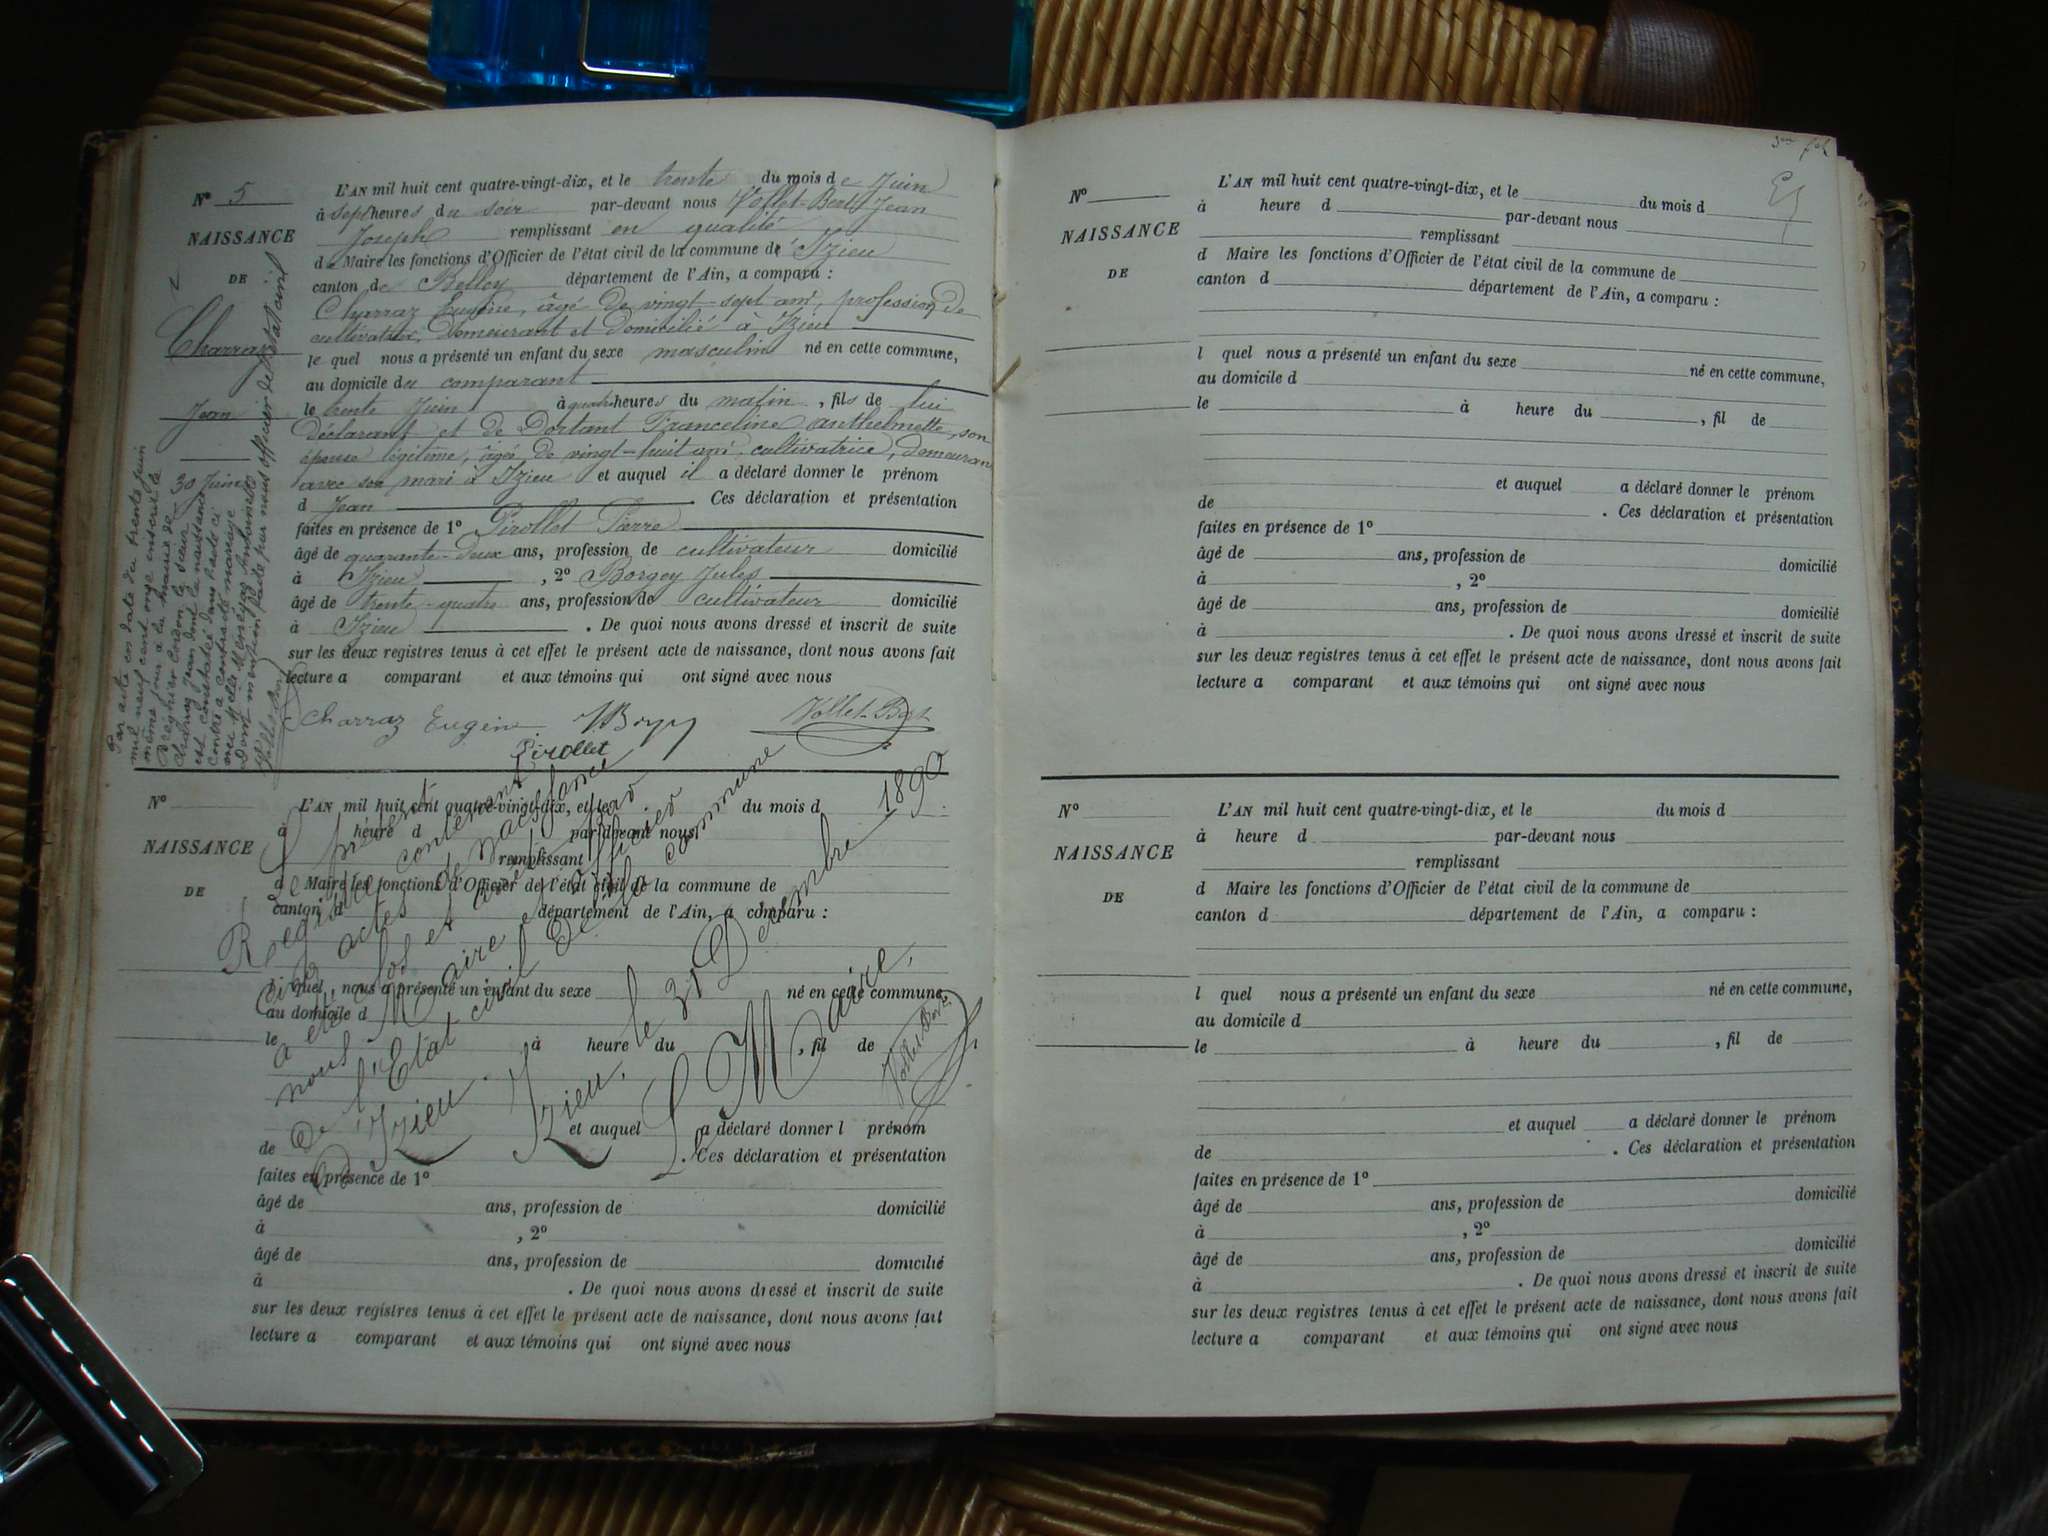 N° 5
NAISSANCE
DE
Charraz
Jean
30 Juin
L'AN mil huit cent quatre-vingt-dix, et le trente du mois de Juin
à sept heures du soir par-devant nous Vollet-Bert Jean
Joseph remplissant en qualité
de Maire les fonctions d'Officier de l'état civil de la commune d'Izieu
canton de Belley département de l'Ain, a comparu :
Charraz Eugène, âgé de vingt-sept ans, profession de
cultivateur, demeurant et domicilié à Izieu
le quel nous a présenté un enfant du sexe masculin né en cette commune,
au domicile du comparant
le trente Juin à quatre heures du matin, fils de lui
déclarant et de Dortant Franceline Anthelmette, son
épouse légitime, âgée de vingt-huit ans, cultivatrice, demeurant
avec son mari à Izieu et auquel il a déclaré donner le prénom
d Jean . Ces déclaration et présentation
faites en présence de 1° Pirollet Pierre
âgé de quarante-deux ans, profession de cultivateur domicilié
à Izieu , 2° Borgey Jules
âgé de trente-quatre ans, profession de cultivateur domicilié
à Izieu . De quoi nous avons dressé et inscrit de suite
sur les deux registres tenus à cet effet le présent acte de naissance, dont nous avons fait
lecture a comparant et aux témoins qui ont signé avec nous
Charraz Eugène J Borgey Vollet-Bert
Pirollet
Par acte en date du trente juin
mil neuf cent onze inscrit le
même jour à la mairie de
Brégnier Cordon le sieur
Charraz Jean dont la naissance
est constatée dans l'acte ci
contre a contracté mariage
avec Melle
Dont mention faite par nous officier de l'état civil
N°
NAISSANCE
DE
L'AN mil huit cent quatre-vingt-dix, et le du mois d
à heure d par-devant nous
remplissant
d Maire les fonctions d'Officier de l'état civil de la commune de
canton d département de l'Ain, a comparu :
l quel nous a présenté un enfant du sexe né en cette commune,
au domicile d
le à heure du , fil de
et auquel a déclaré donner l prénom
de . Ces déclaration et présentation
faites en présence de 1°
âgé de ans, profession de domicilié
à , 2°
âgé de ans, profession de domicilié
à . De quoi nous avons dressé et inscrit de suite
sur les deux registres tenus à cet effet le présent acte de naissance, dont nous avons fait
lecture a comparant et aux témoins qui ont signé avec nous
Le présent
Registre contenant
cinq actes de naissance
a été clos et arrêté par
nous Maire et officier
de l'Etat civil de la commune
d'Izieu.
Izieu, le 31 Décembre 1890
Le Maire,
Vollet-Bert
3me fet
N°
NAISSANCE
DE
L'AN mil huit cent quatre-vingt-dix, et le du mois d
à heure d par-devant nous
remplissant
d Maire les fonctions d'Officier de l'état civil de la commune de
canton d département de l'Ain, a comparu :
l quel nous a présenté un enfant du sexe né en cette commune,
au domicile d
le à heure du , fil de
et auquel a déclaré donner le prénom
de . Ces déclaration et présentation
faites en présence de 1°
âgé de ans, profession de domicilié
à , 2°
âgé de ans, profession de domicilié
à . De quoi nous avons dressé et inscrit de suite
sur les deux registres tenus à cet effet le présent acte de naissance, dont nous avons fait
lecture a comparant et aux témoins qui ont signé avec nous
N°
NAISSANCE
DE
L'AN mil huit cent quatre-vingt-dix, et le du mois d
à heure d par-devant nous
remplissant
d Maire les fonctions d'Officier de l'état civil de la commune de
canton d département de l'Ain, a comparu :
l quel nous a présenté un enfant du sexe né en cette commune,
au domicile d
le à heure du , fil de
et auquel a déclaré donner le prénom
de . Ces déclaration et présentation
faites en présence de 1°
âgé de ans, profession de domicilié
à , 2°
âgé de ans, profession de domicilié
à . De quoi nous avons dressé et inscrit de suite
sur les deux registres tenus à cet effet le présent acte de naissance, dont nous avons fait
lecture a comparant et aux témoins qui ont signé avec nous